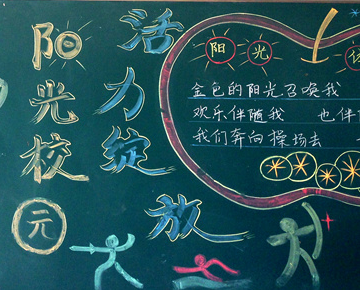 阳光校元
活力绽放
阳 光 体
金色的阳光召唤我
欢乐伴随我 也伴
我们奔向操场去